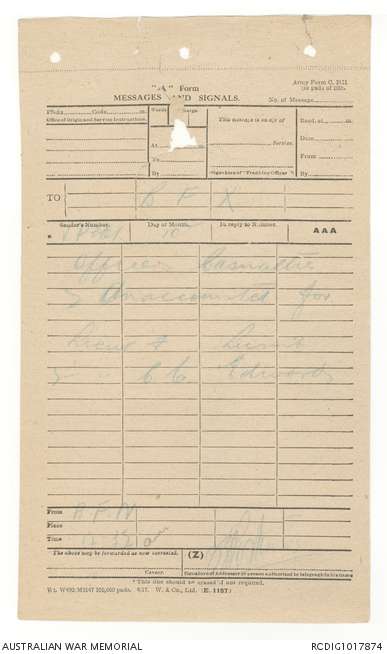 "A" Form
Army Form C. 2121
(in pads of 100).
MESSAGES AND SIGNALS.
No. of Message
Prefix Code m.
Words
Charge
This message is on a/c of
Recd. at m.
Office of Origin and Service Instructions.
Date
At m.
Service.
From
To
By
(Signature of "Franking Officer")
By
TO B F X
Sender's Number.
Day of Month.
In reply to Number.
AAA
* 10
Officer Casualties
& Unaccounted for
Lieut
C C Edwards
From
Place
Time 12.32 am
The above may be forwarded as now corrected.
(Z)
Censor.
Signature of Addressor or person authorised to telegraph in his name
* This line should be erased if not required.
W. & Co., Ltd. (E. 1187)
AUSTRALIAN WAR MEMORIAL
RCDIG1017874